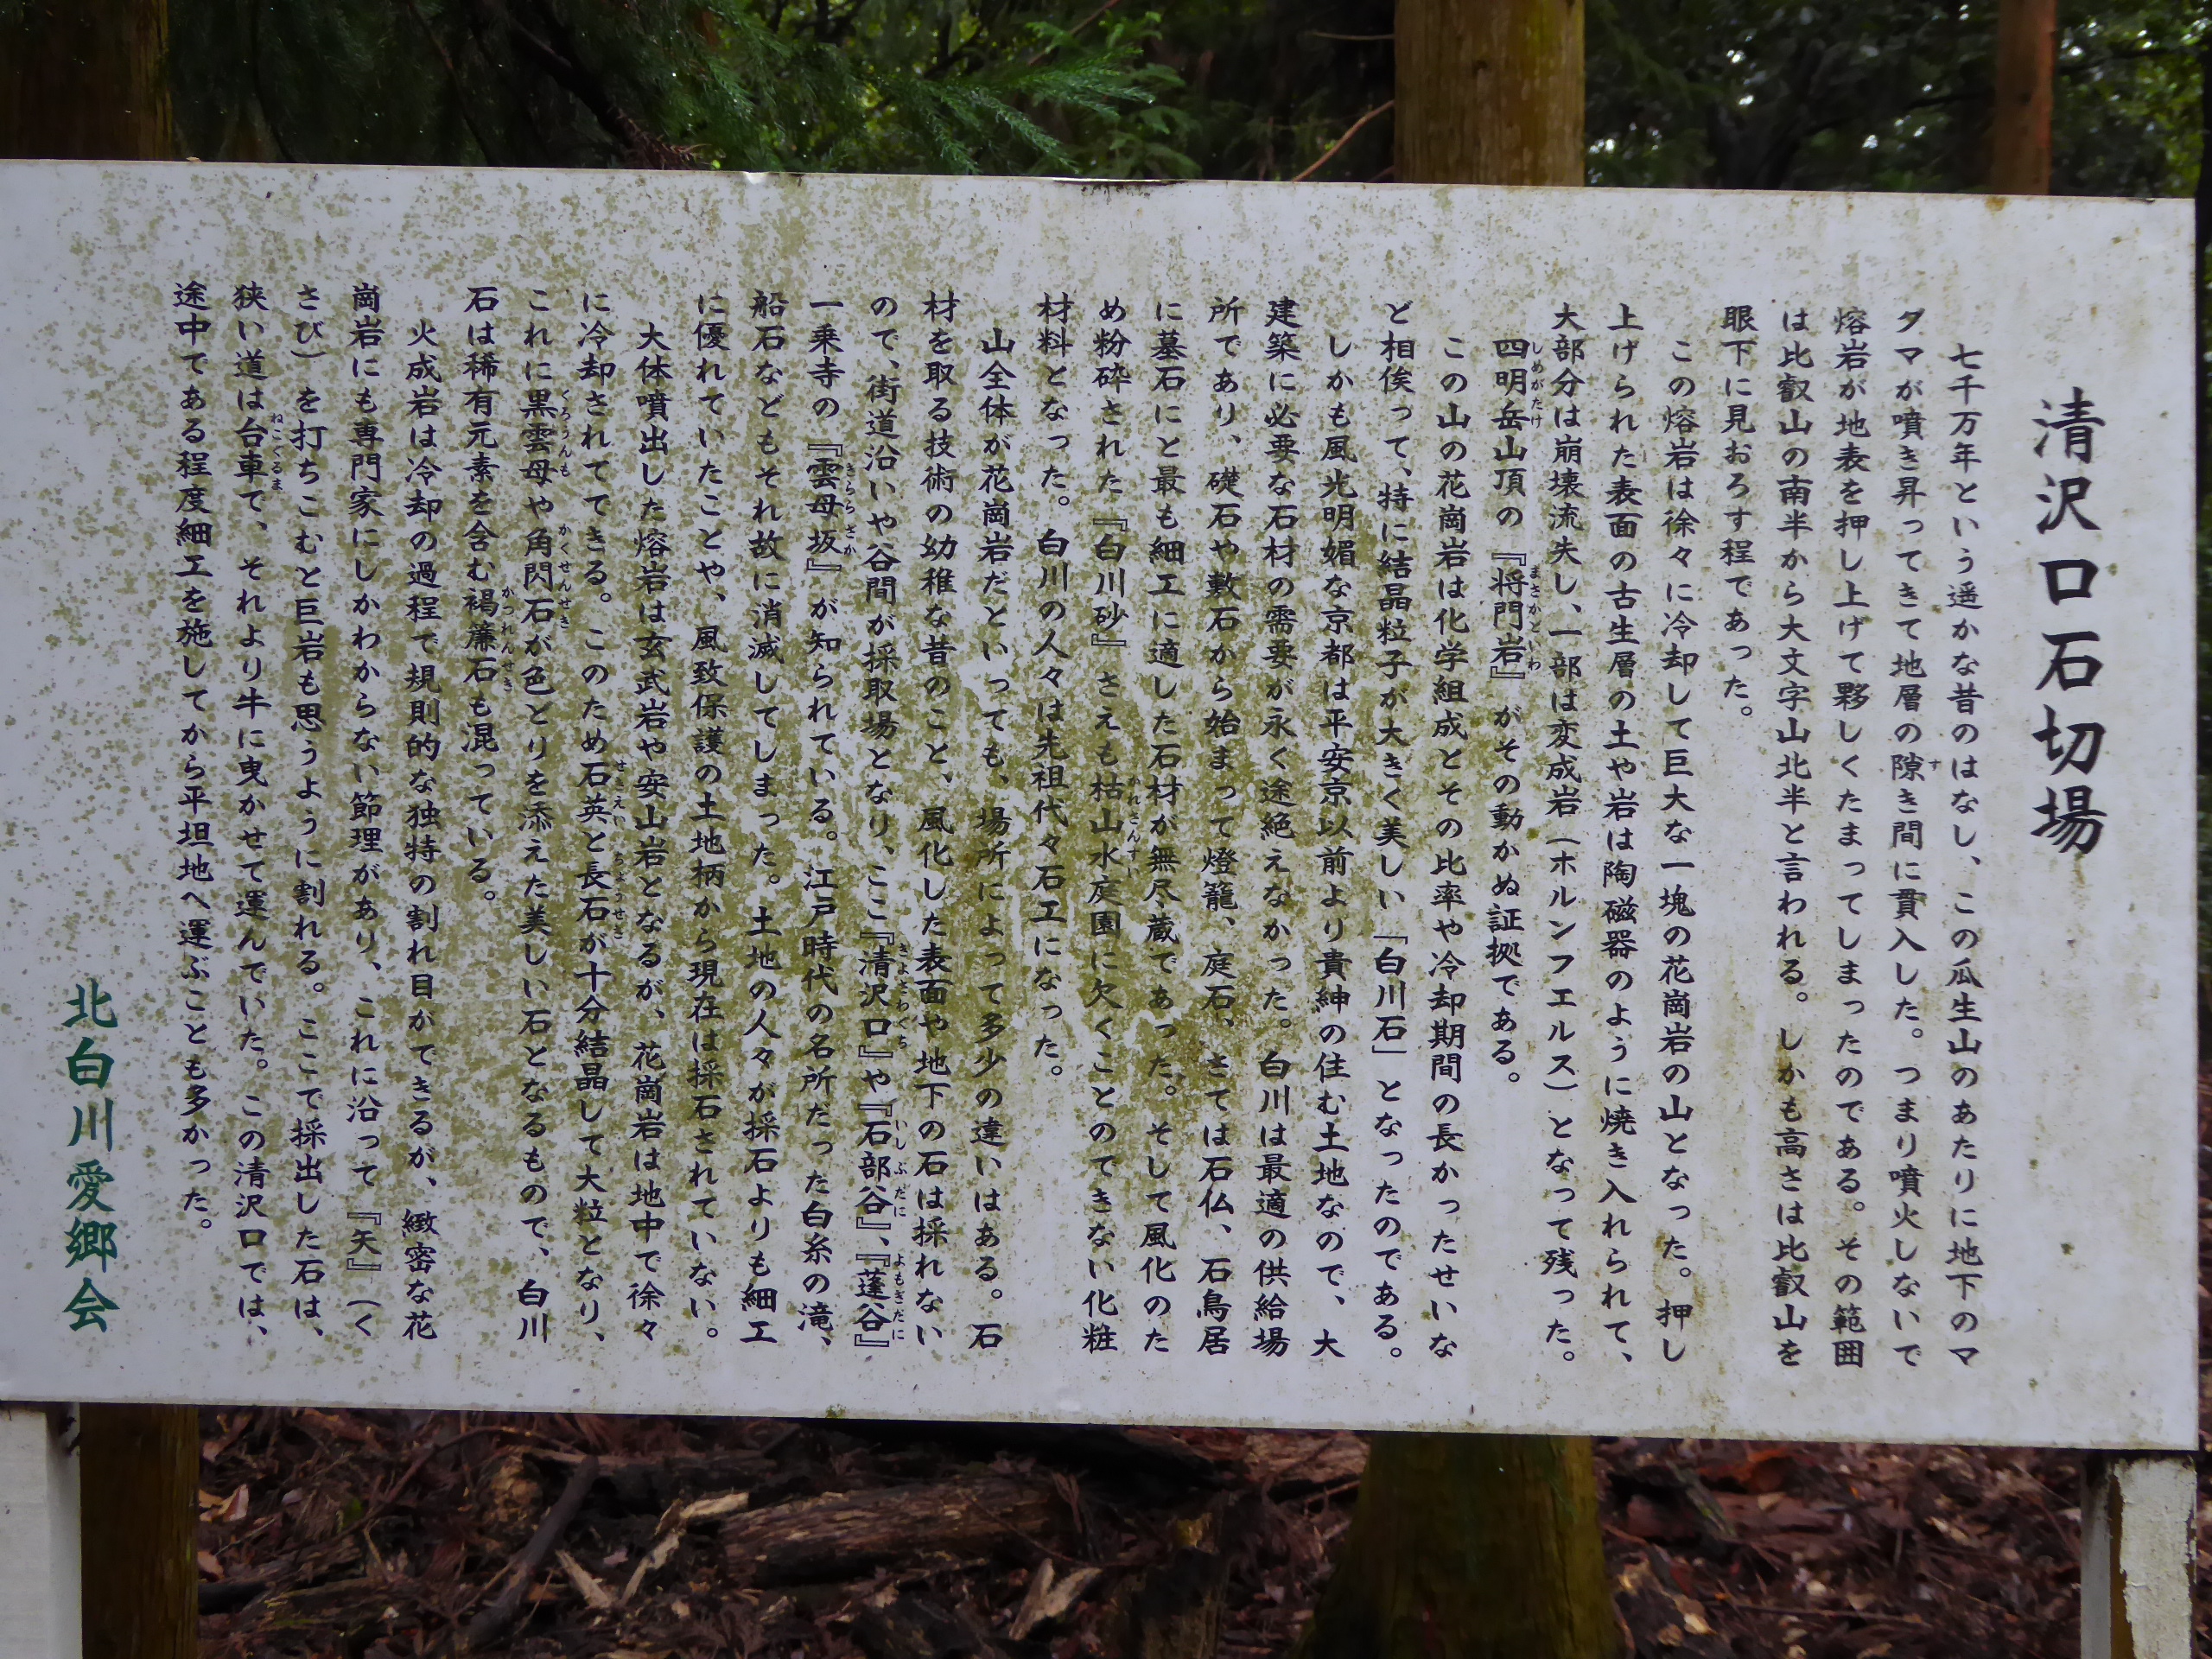 清沢口石切場
七千万年という遥かな昔のはなし、この瓜生山のあたりに地下のマ
グマが噴き昇ってきて地層の隙き間に貫入した。つまり噴火しないで
熔岩が地表を押し上げて夥しくたまってしまったのである。その範囲
は比叡山の南半から大文字山北半と言われる。しかも高さは比叡山を
眼下に見おろす程であった。
この熔岩は徐々に冷却して巨大な一塊の花崗岩の山となった。押し
上げられた表面の古生層の土や岩は陶磁器のように焼き入れられて、
大部分は崩壊流失し、一部は変成岩(ホルンフエルス)となって残った。
四明岳山頂の『将門岩』がその動かぬ証拠である。
この山の花崗岩は化学組成とその比率や冷却期間の長かったせいな
ど相俟って、特に結晶粒子が大きく美しい「白川石」となったのである。
しかも風光明媚な京都は平安京以前より貴紳の住む土地なので、大
建築に必要な石材の需要が永く途絶えなかった。白川は最適の供給場
所であり、礎石や敷石から始まって燈籠、庭石、さては石仏、石鳥居
に墓石にと最も細工に適した石材が無尽蔵であった。そして風化のた
め粉砕された『白川砂』さえも枯山水庭園に欠くことのできない化粧
材料となった。白川の人々は先祖代々石工になった。
山全体が花崗岩だといっても、場所によって多少の違いはある。石
材を取る技術の幼稚な昔のこと、風化した表面や地下の石は採れない
ので、街道沿いや谷間が採取場となり、ここ『清沢口』や『石部谷』、『蓬谷』
一乗寺の『雲母坂』が知られている。江戸時代の名所だった白糸の滝、
船石などもそれ故に消滅してしまった。土地の人々が採石よりも細工
に優れていたことや、風致保護の土地柄から現在は採石されていない。
大体噴出した熔岩は玄武岩や安山岩となるが、花崗岩は地中で徐々
に冷却されてできる。このため石英と長石が十分結晶して大粒となり、
これに黒雲母や角閃石が色どりを添えた美しい石となるもので、白川
石は稀有元素を含む褐簾石も混っている。
火成岩は冷却の過程で規則的な独特の割れ目ができるが、緻密な花
崗岩にも専門家にしかわからない節理があり、これに沿って『矢』(く
さび)を打ちこむと巨岩も思うように割れる。ここで採出した石は、
狭い道は台車で、それより牛に曳かせて運んでいた。この清沢口では、
途中である程度細工を施してから平坦地へ運ぶことも多かった。
北白川愛郷会